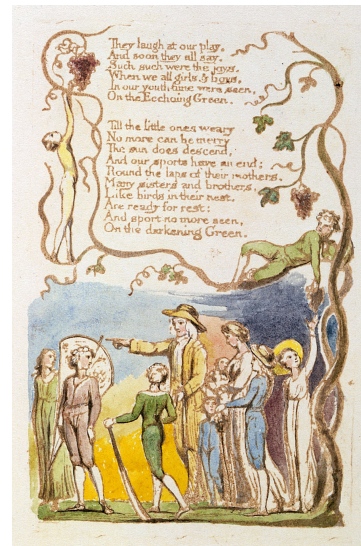 They laugh at our play,
And soon they all say,
Such such were the joys,
When we all girls & boys,
In our youth time were seen,
On the Ecchoing Green.
Till the little ones weary
No more can be merry
The sun does descend,
And our sports have an end:
Round the laps of their mothers,
Many sisters and brothers,
Like birds in their nest,
Are ready for rest:
And sport no more seen,
On the darkening Green.